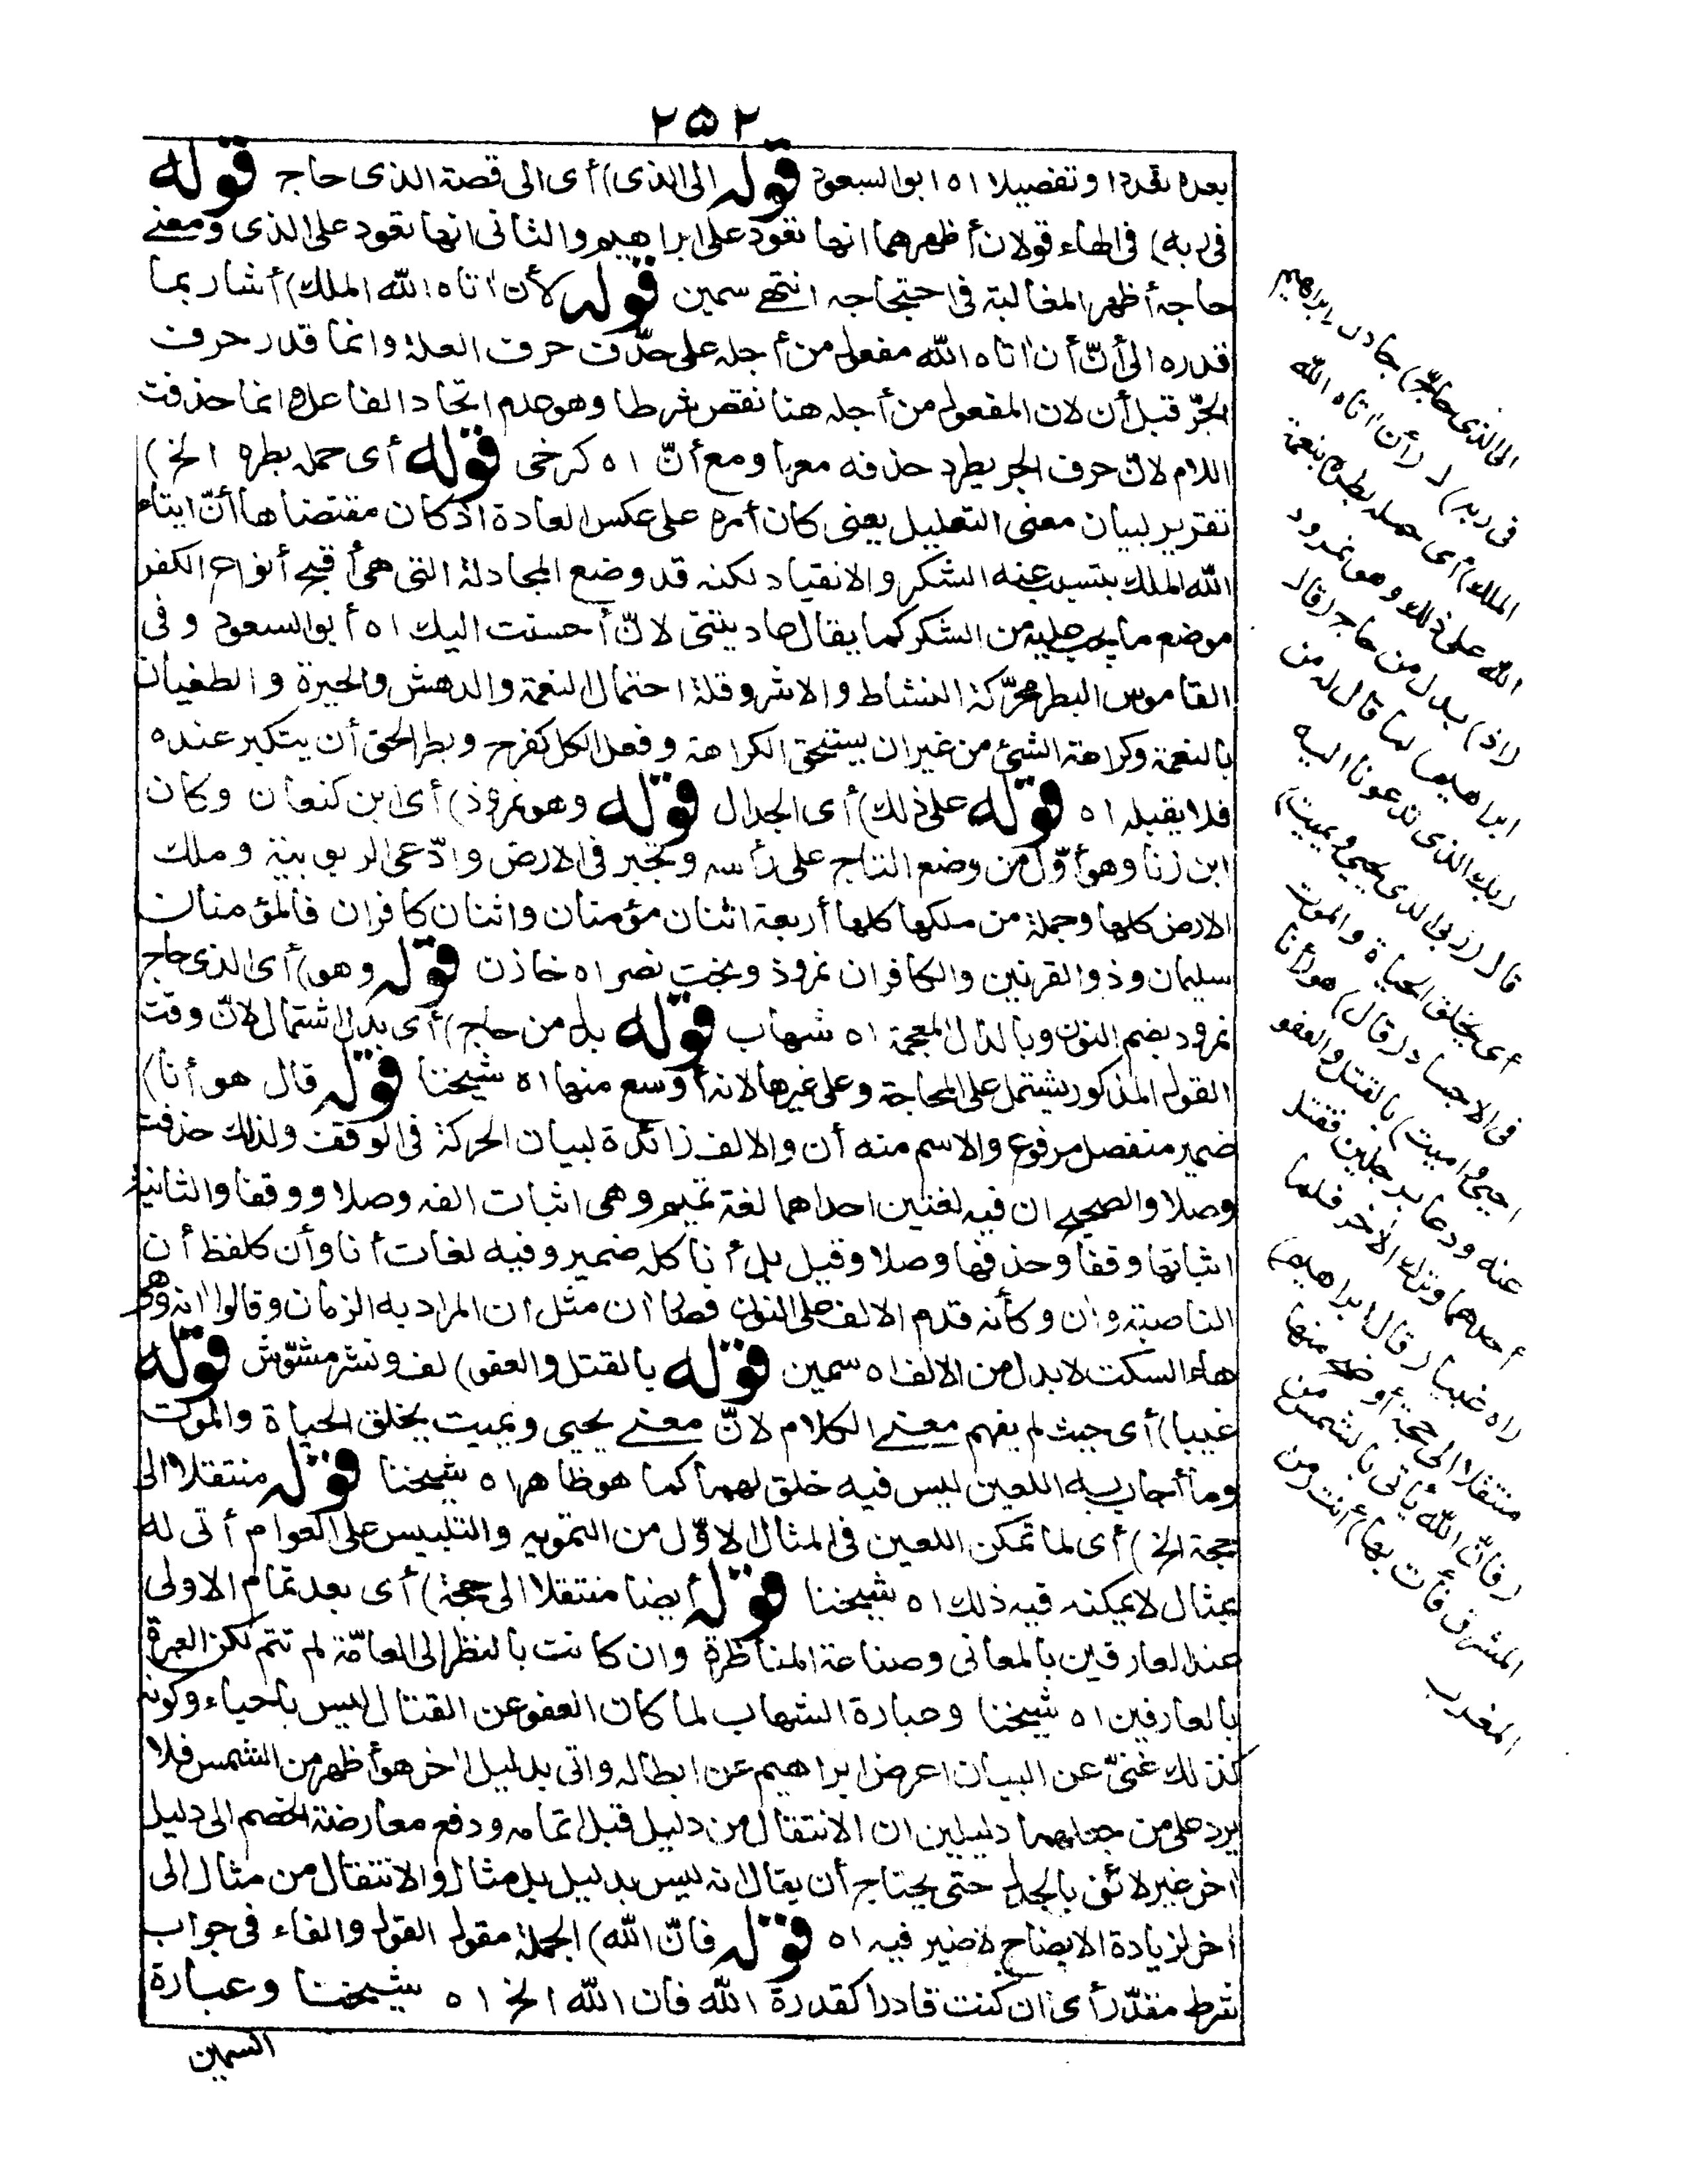 ٢٥٢
بعده تقدرا وتفصيلا اه ابو السعود قوله الى الذى) أى الى قصة الذى حاج قوله
فى ربه) فى الهاء قولان أظهرهما انها تعود على ابراهيم والثانى انها تعود على الذى ومعنى
حاجه أظهر المغالبة فى احتجاجه انتهى سمين قوله لأن اتاه الله الملك) أشار بما
قدره الى أنّ أن اتاه الله مفعول من أجله على حذف حرف العلة وانما قدر حرف
الجرّ قبل أن لان المفعول من أجله هنا نقص شرطا وهو عدم اتحاد الفاعل وانما حذفت
اللام لانّ حرف الجر يطرد حذفه معها ومع أنّ اه كرخى قوله أى حمله بطره الخ)
تقرير لبيان معنى التعليل يعنى كان أمره على عكس العادة اذ كان مقتضاها أنّ ايتاء
الله الملك يتسبب عنه الشكر والانقياد لكنه قد وضع المجادلة التى هى أقبح أنواع الكفر
موضع ما يجب عليه من الشكر كما يقال عاديتنى لانّ أحسنت اليك اه أبو السعود وفى
القاموس البطر محرّكة النشاط والاشر وقلة احتمال النعمة والدهش والحيرة والطغيان
بالنعمة وكراهة الشئ من غير ان يستحق الكراهة وفعل الكل كفرح وبطر الحق أن يتكبر عنده
فلا يقبله اه قوله على ذلك) أى الجدال قوله وهو نمروذ) أى ابن كنعان وكان
ابن زنا وهو أوّل من وضع التاج على رأسه وتجبر فى الارض وادّعى الربوبية وملك
الارض كلها وجملة من ملكها كلها أربعة اثنان مؤمنان واثنان كافران فالمؤمنان
سليمان وذو القرنين والكافران نمروذ وبخت نصر اه خازن قوله وهو) أى الذى حاج
نمرود بضم النون وبالذال المعجمة اه شهاب قوله بدل من حاج) أى بدل اشتمال لانّ وقت
القول المذكور يشتمل على المحاجة وعلى غيرها لانه أوسع منها اه شيخنا قوله قال هو أنا)
ضمير منفصل مرفوع والاسم منه أن والالف زائدة لبيان الحركة فى الوقف ولذلك حذفت
وصلا والصحيح ان فيه لغتين احداهما لغة تميم وهى اثبات الفه وصلا ووقفا والثانية
اثباتها وقفا وحذفها وصلا وقيل بل أنا كله ضمير وفيه لغات أنا وأن كلفظ أن
الناصبة وان وكأنه قدم الالف على النون فصار ان مثل ان المراد به الزمان وقالوا انه وهى
هاء السكت لا بدل من الالف اه سمين قوله بالقتل والعفو) لف ونشر مشوّش قوله
غبيا) أى حيث لم يفهم معنى الكلام لانّ معنى يحيى ويميت يخلق الحياة والموت
وما أجاب به اللعين ليس فيه خلق لهما كما هو ظاهر اه شيخنا قوله منتقلا الى
حجة الخ) أى لما تمكن اللعين فى المثال الاوّل من التمويه والتلبيس على العوام أتى له
بمثال لا يمكنه فيه ذلك اه شيخنا قوله أيضا منتقلا الى حجة) أى بعد تمام الاولى
عند العارفين بالمعانى وصناعة المناظرة وان كانت بالنظر الى العامّة لم تتم لكن العبرة
بالعارفين اه شيخنا وعبارة الشهاب لما كان العفو عن القتال ليس باحياء وكونه
كذلك غنىّ عن البيان اعرض ابراهيم عن ابطاله واتى بدليل اخر هو أظهر من الشمس فلا
يرد على من جعلهما دليلين ان الانتقال من دليل قبل تمامه ودفع معارضة الخصم الى دليل
اخر غير لائق بالجدل حتى يحتاج أن يقال انه ليس بدليل بل مثال والانتقال من مثال الى
اخر لزيادة الايضاح لا ضير فيه اه قوله فانّ الله) الجملة مقول القول والفاء فى جواب
شرط مقدّر أى ان كنت قادرا كقدرة الله فان الله الخ اه شيخنا وعبارة
السمين
الى الذى حاجّ) جادل ابراهيم
فى ربه) ل (أن اتاه الله
الملك) أى حمله بطره بنعمة
الله على ذلك وهو نمرود
(اذ) بدل من حاج (قال
ابراهيم) لما قال له من
ربك الذى تدعونا اليه
قال (ربى الذى يحيى ويميت)
أى يخلق الحياة والموت
فى الاجساد (قال) هو (أنا
احيى واميت) بالقتل والعفو
عنه ودعا برجلين فقتل
أحدهما وترك الآخر فلما
راه غبيا (قال ابراهيم)
منتقلا الى حجة أوضح منها
(فانّ الله يأتى بالشمس من
المشرق فأت بها) أنت (من
المغرب